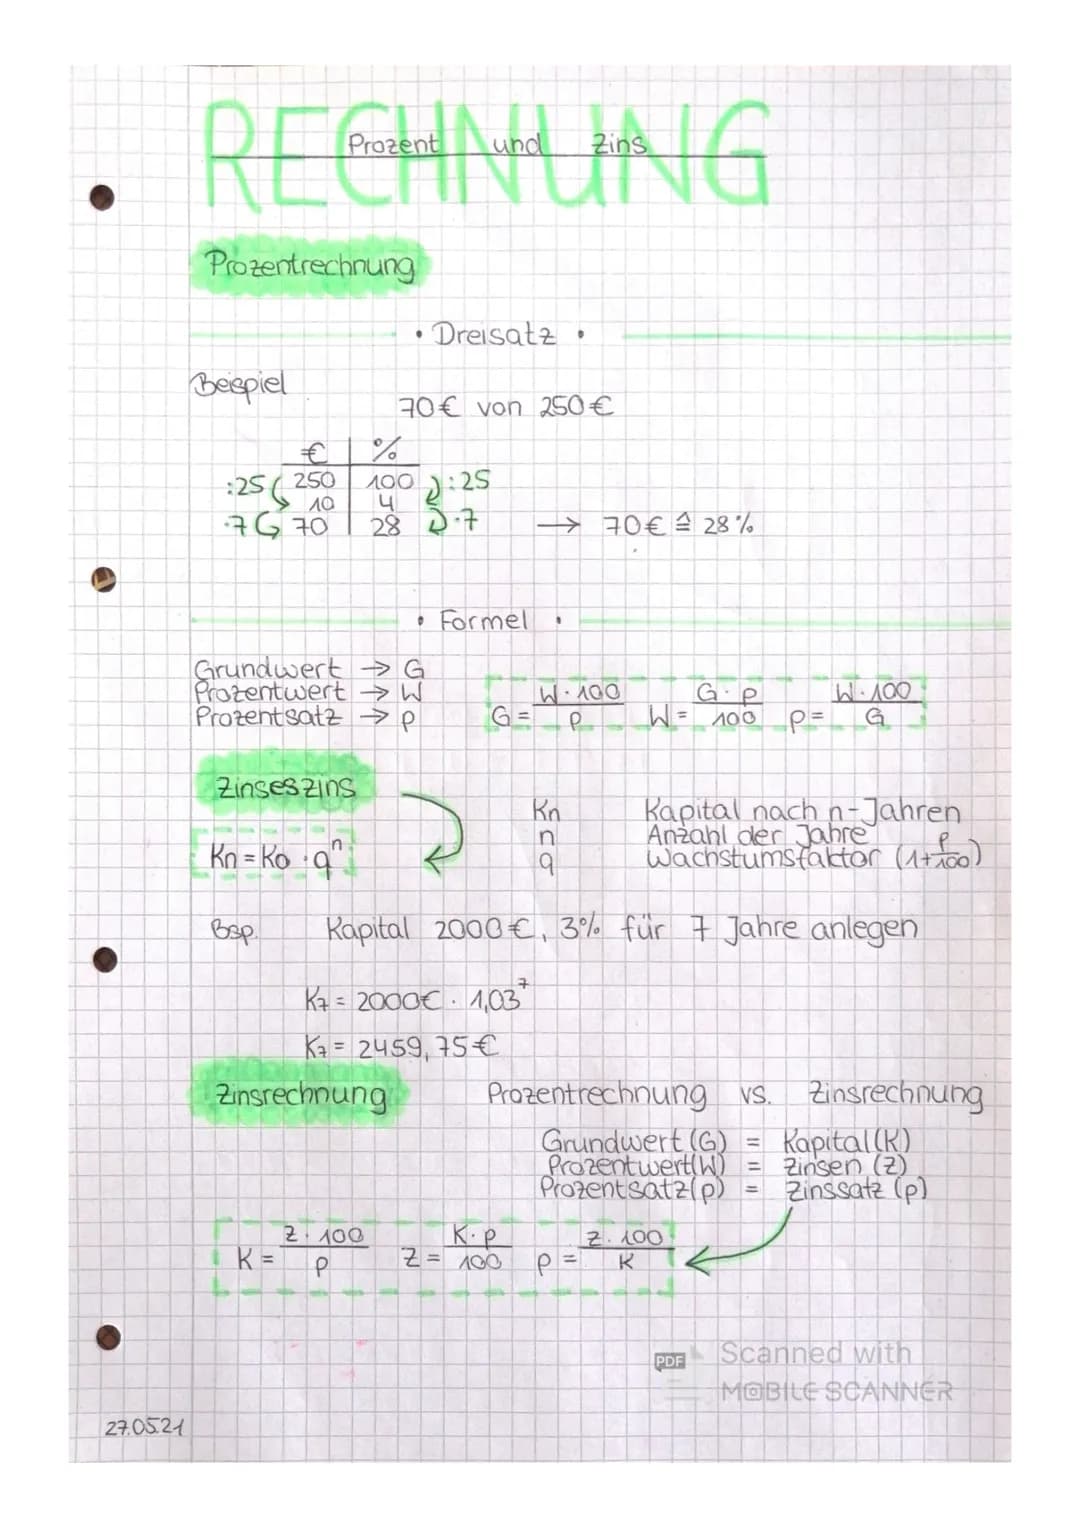 RECHNUNG
Prozent und Zins
Prozentrechnung
• Dreisatz •
Beispiel
70€ von 250€
€ | %
:25 250 | 100 :25
10 | 4
·7 70 | 28 ·7 → 70€ ≙ 28%
• Formel •
Grundwert → G
Prozentwert → W
Prozentsatz → p
G = W·100/p W = G·p/100 p = W·100/G
Zinseszins
Kn = K0 · qⁿ
Kn Kapital nach n-Jahren
n Anzahl der Jahre
q Wachstumsfaktor (1+p/100)
Bsp. Kapital 2000€, 3% für 7 Jahre anlegen
K7 = 2000€ · 1,03⁷
K7 = 2459,75€
Zinsrechnung
Prozentrechnung vs. Zinsrechnung
Grundwert (G) = Kapital (K)
Prozentwert (W) = Zinsen (Z)
Prozentsatz (p) = Zinssatz (p)
K = Z·100/p Z = K·p/100 p = Z·100/K
PDF Scanned with
MOBILE SCANNER
27.05.21